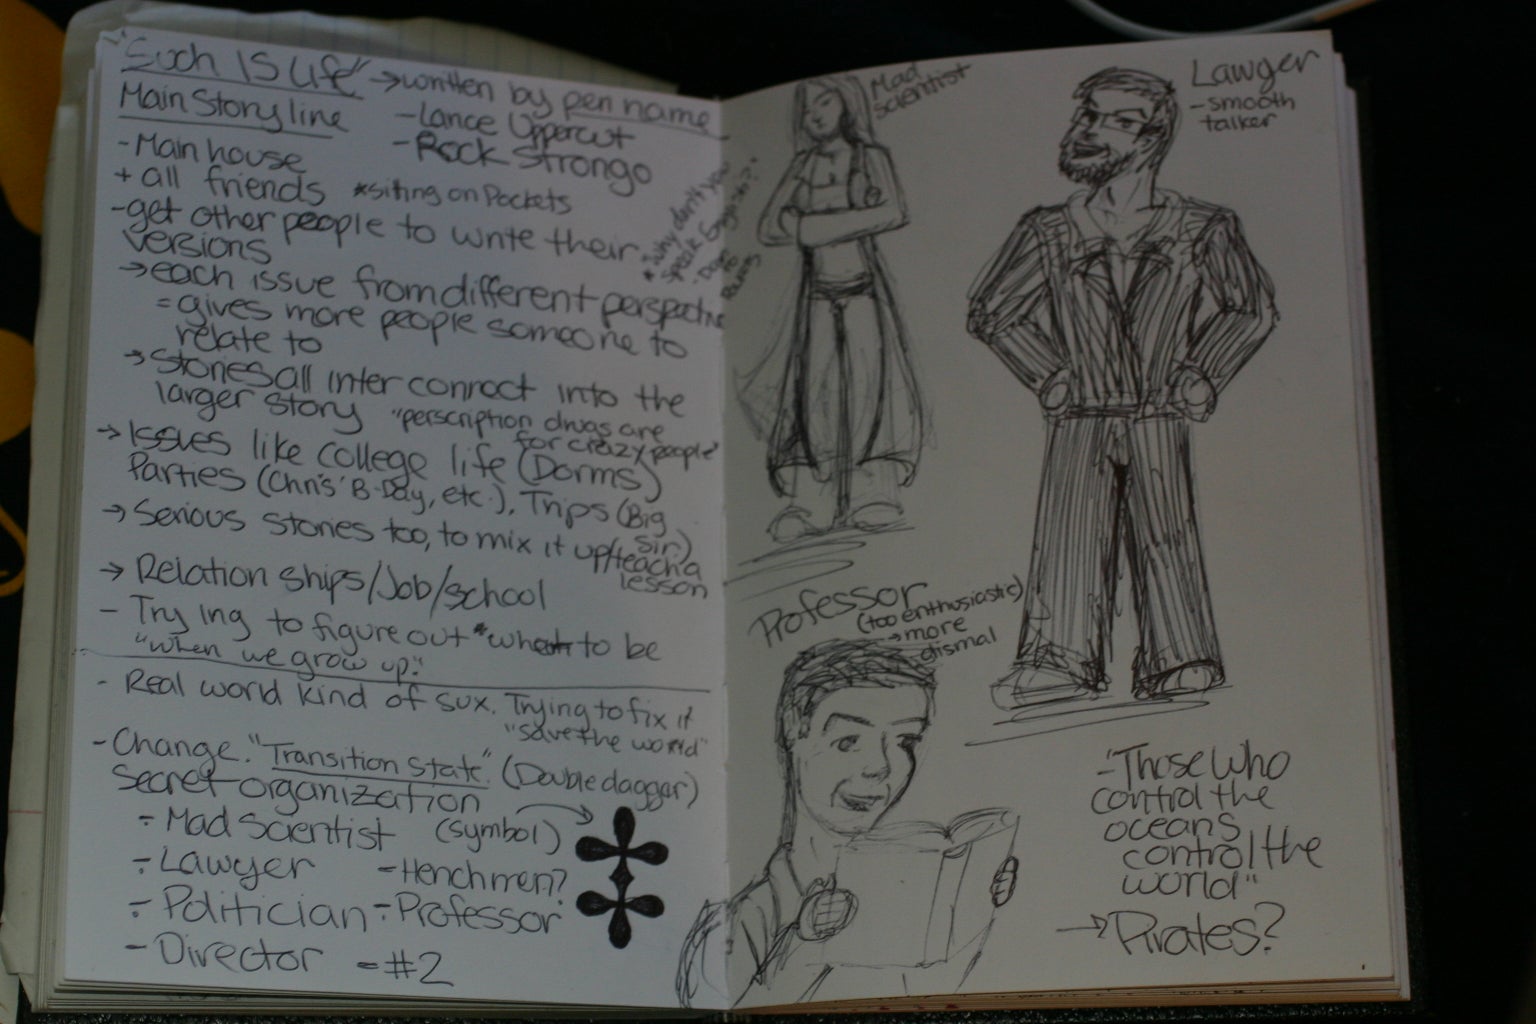 "Such Is Life" → written by pen name
Main Story line
- Lance Uppercut
- Rock Strongo
- Main house
+ all friends *sitting on Pockets
- get other people to write their
versions
→ each issue from different perspective
= gives more people someone to
relate to
→ Stories all inter connect into the
larger story "perscription drugs are
for crazy people"
→ Issues like College life (Dorms)
Parties (Chris' B-Day, etc.), Trips (Big
Sir)
→ Serious stories too, to mix it up/teach a
lesson
→ Relation ships/Job/school
- Try ing to figure out "what to be
"when we grow up."
- Real world kind of sux. Trying to fix it
"save the world"
- Change. "Transition State". (Double dagger)
secret organization
- Mad Scientist (symbol)
- Lawyer - Henchmen?
- Politician - Professor
- Director - #2
* why don't you
speak English?
Mad
scientist
Lawyer
- smooth
talker
Professor
(too enthusiastic)
→ more
dismal
- "Those who
control the
oceans
control the
world"
→ Pirates?